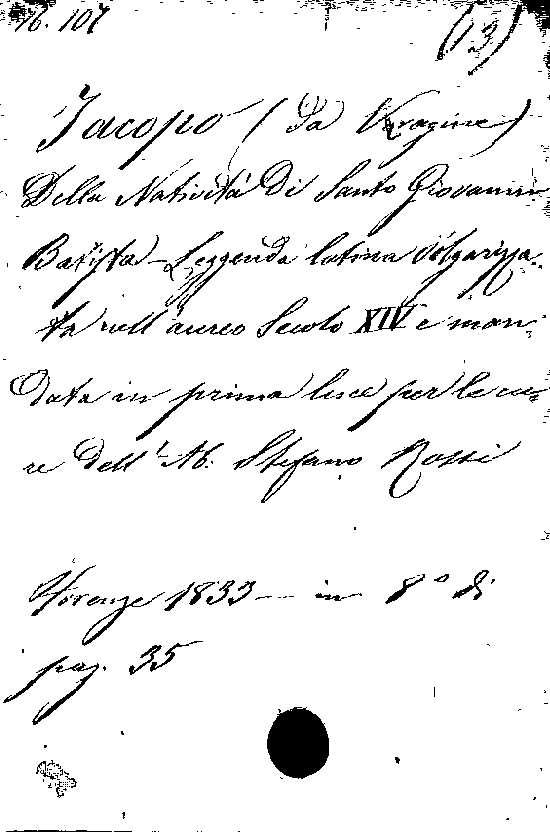 76. 107
(13)
Jacopo (Da Varagine)
Della Natività di Santo Giovanni
Batista - Leggenda latina volgarizza-
ta nell'aureo Secolo XIV e man-
data in prima luce per le cu-
re dell'Ab. Stefano Rossi
Firenze 1833 — in 8° di
pag. 35